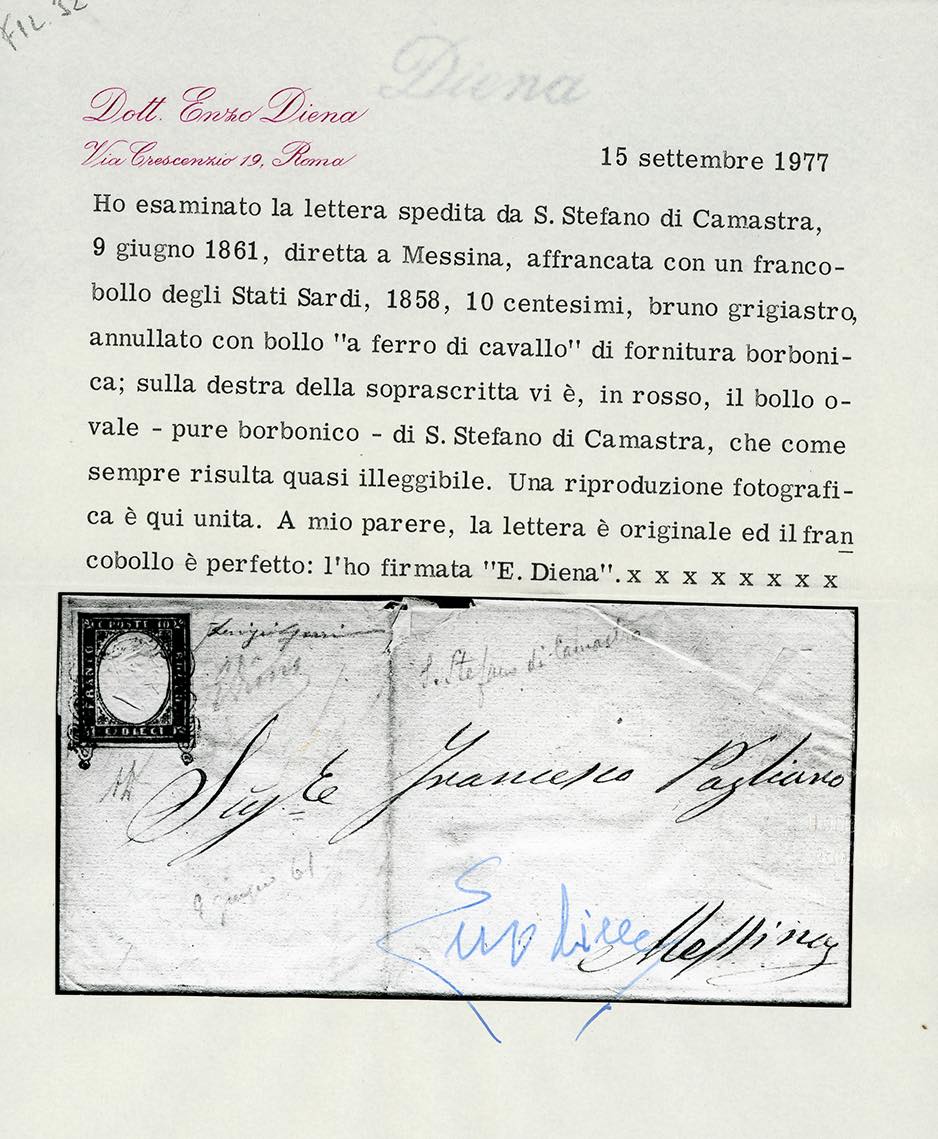 FIL. 32
Diena
Dott. Enzo Diena
Via Crescenzio 19, Roma
15 settembre 1977
Ho esaminato la lettera spedita da S. Stefano di Camastra,
9 giugno 1861, diretta a Messina, affrancata con un franco-
bollo degli Stati Sardi, 1858, 10 centesimi, bruno grigiastro,
annullato con bollo "a ferro di cavallo" di fornitura borboni-
ca; sulla destra della soprascritta vi è, in rosso, il bollo o-
vale - pure borbonico - di S. Stefano di Camastra, che come
sempre risulta quasi illeggibile. Una riproduzione fotografi-
ca è qui unita. A mio parere, la lettera è originale ed il fran
cobollo è perfetto: l'ho firmata "E. Diena". x x x x x x x x
C POSTE 10
FRANCO
C DIECI
S. Stefano di Camastra
Sig.E Francesco Pagliano
9 giugno 61
Enzo Diena
Messina